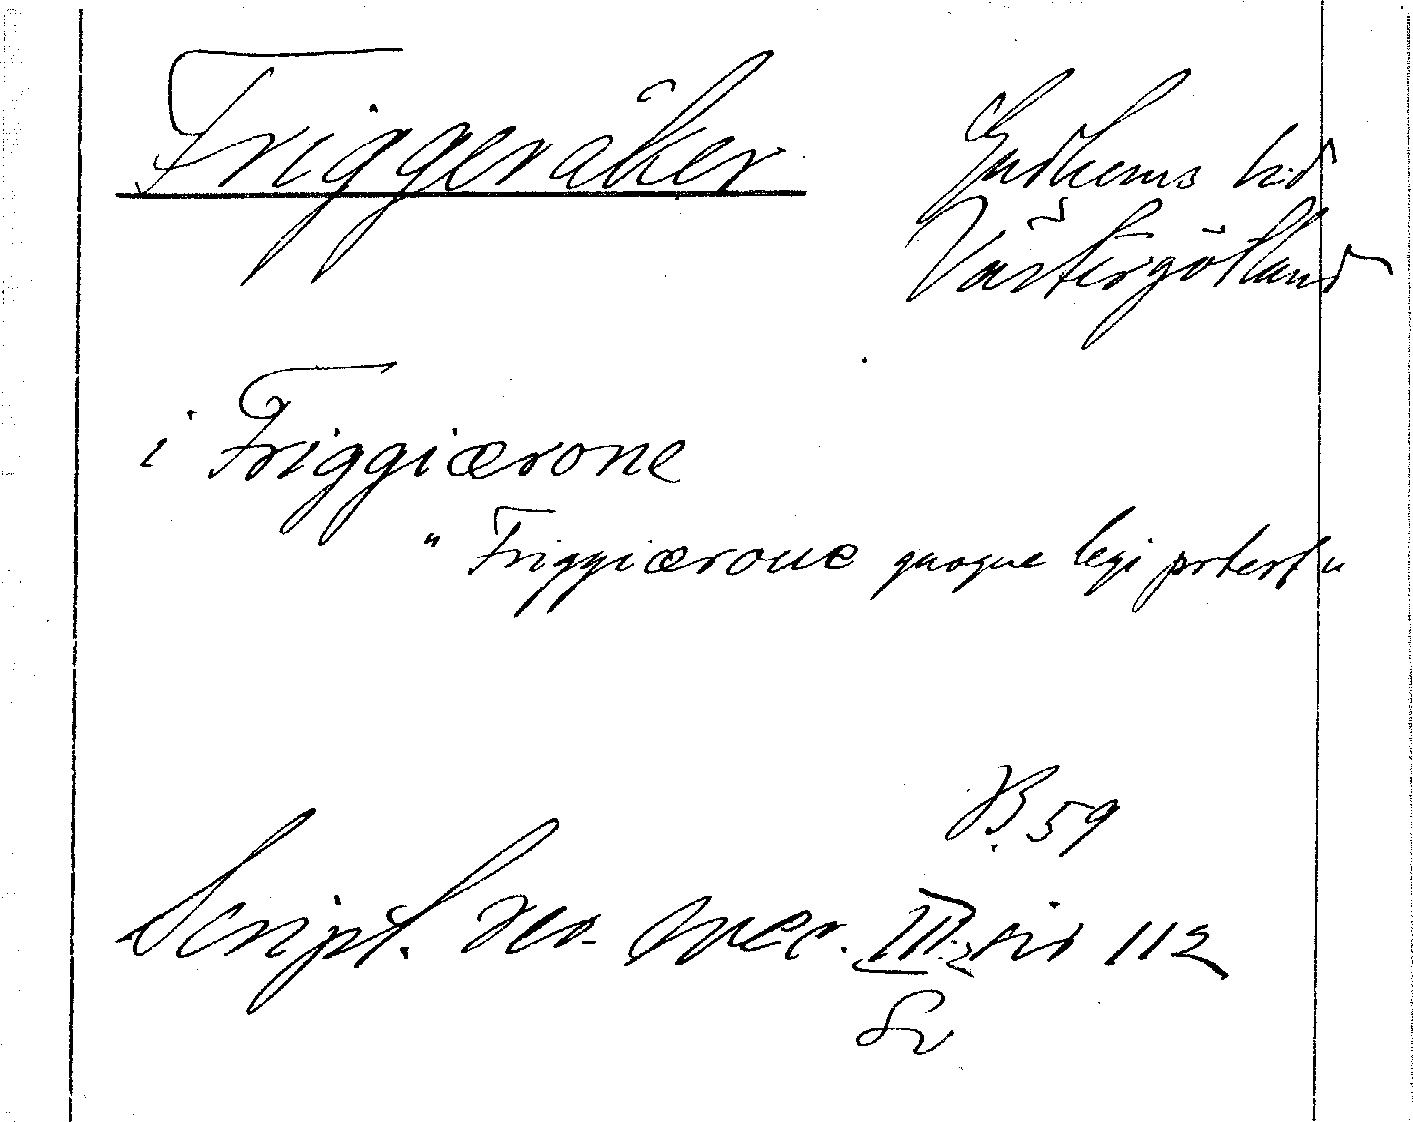 Friggeråker
Gudhems hd
Västergötland
i Friggiærone
" Friggiærone quoque legi potest "
B. 59
Script. rer. svec. III:2 sid 112